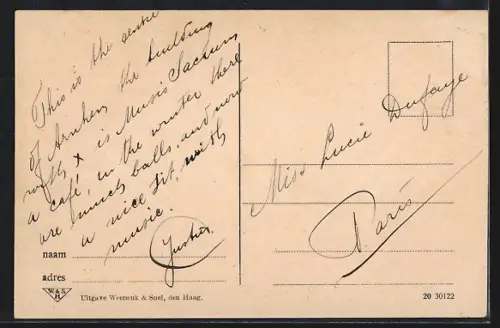 This is the centre
of Arnhem, the building
with x is Musis Sacrum,
a café, in the winter there
are much balls, and now
a nice sit, with
music.
Miss Lucie Dufaye
Paris
naam
adres
W&S
H
Uitgave Weenenk & Snel, den Haag.
20 30122